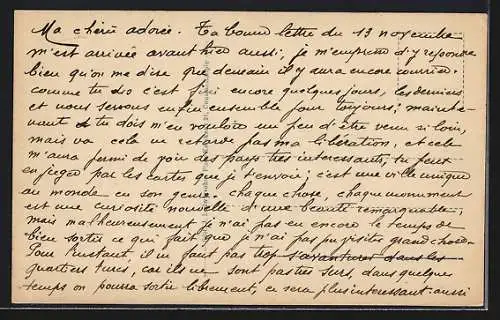 Ma chérie adorée. Ta bonne lettre du 13 novembre
m'est arrivée avant hier aussi, je m'empresse d'y répondre
bien qu'on me dise que demain il y aura encore courrier.
comme tu dis c'est fini encore quelques jours, les derniers
et nous serons enfin ensemble pour toujours; mainte-
nant tu dois m'en vouloir un peu d'être venu si loin,
mais va cela ne retarde pas ma libération, et cela
m'aura permi de voir des pays très interessants, tu peux
en juger par les cartes que je t'envoie; c'est une ville unique
au monde en son genre. chaque chose, chaque monument
est une curiosité nouvelle d'une beauté remarquable,
mais malheureusement je n'ai pas eu encore le temps de
bien sortir ce qui fait que je n'ai pas pu visiter grand chose.
Pour l'instant, il ne faut pas trop s'aventurer dans les
quartiers turcs, car ils ne sont pas très surs, dans quelques
temps on pourra sortir librement, ce sera plus interessant aussi